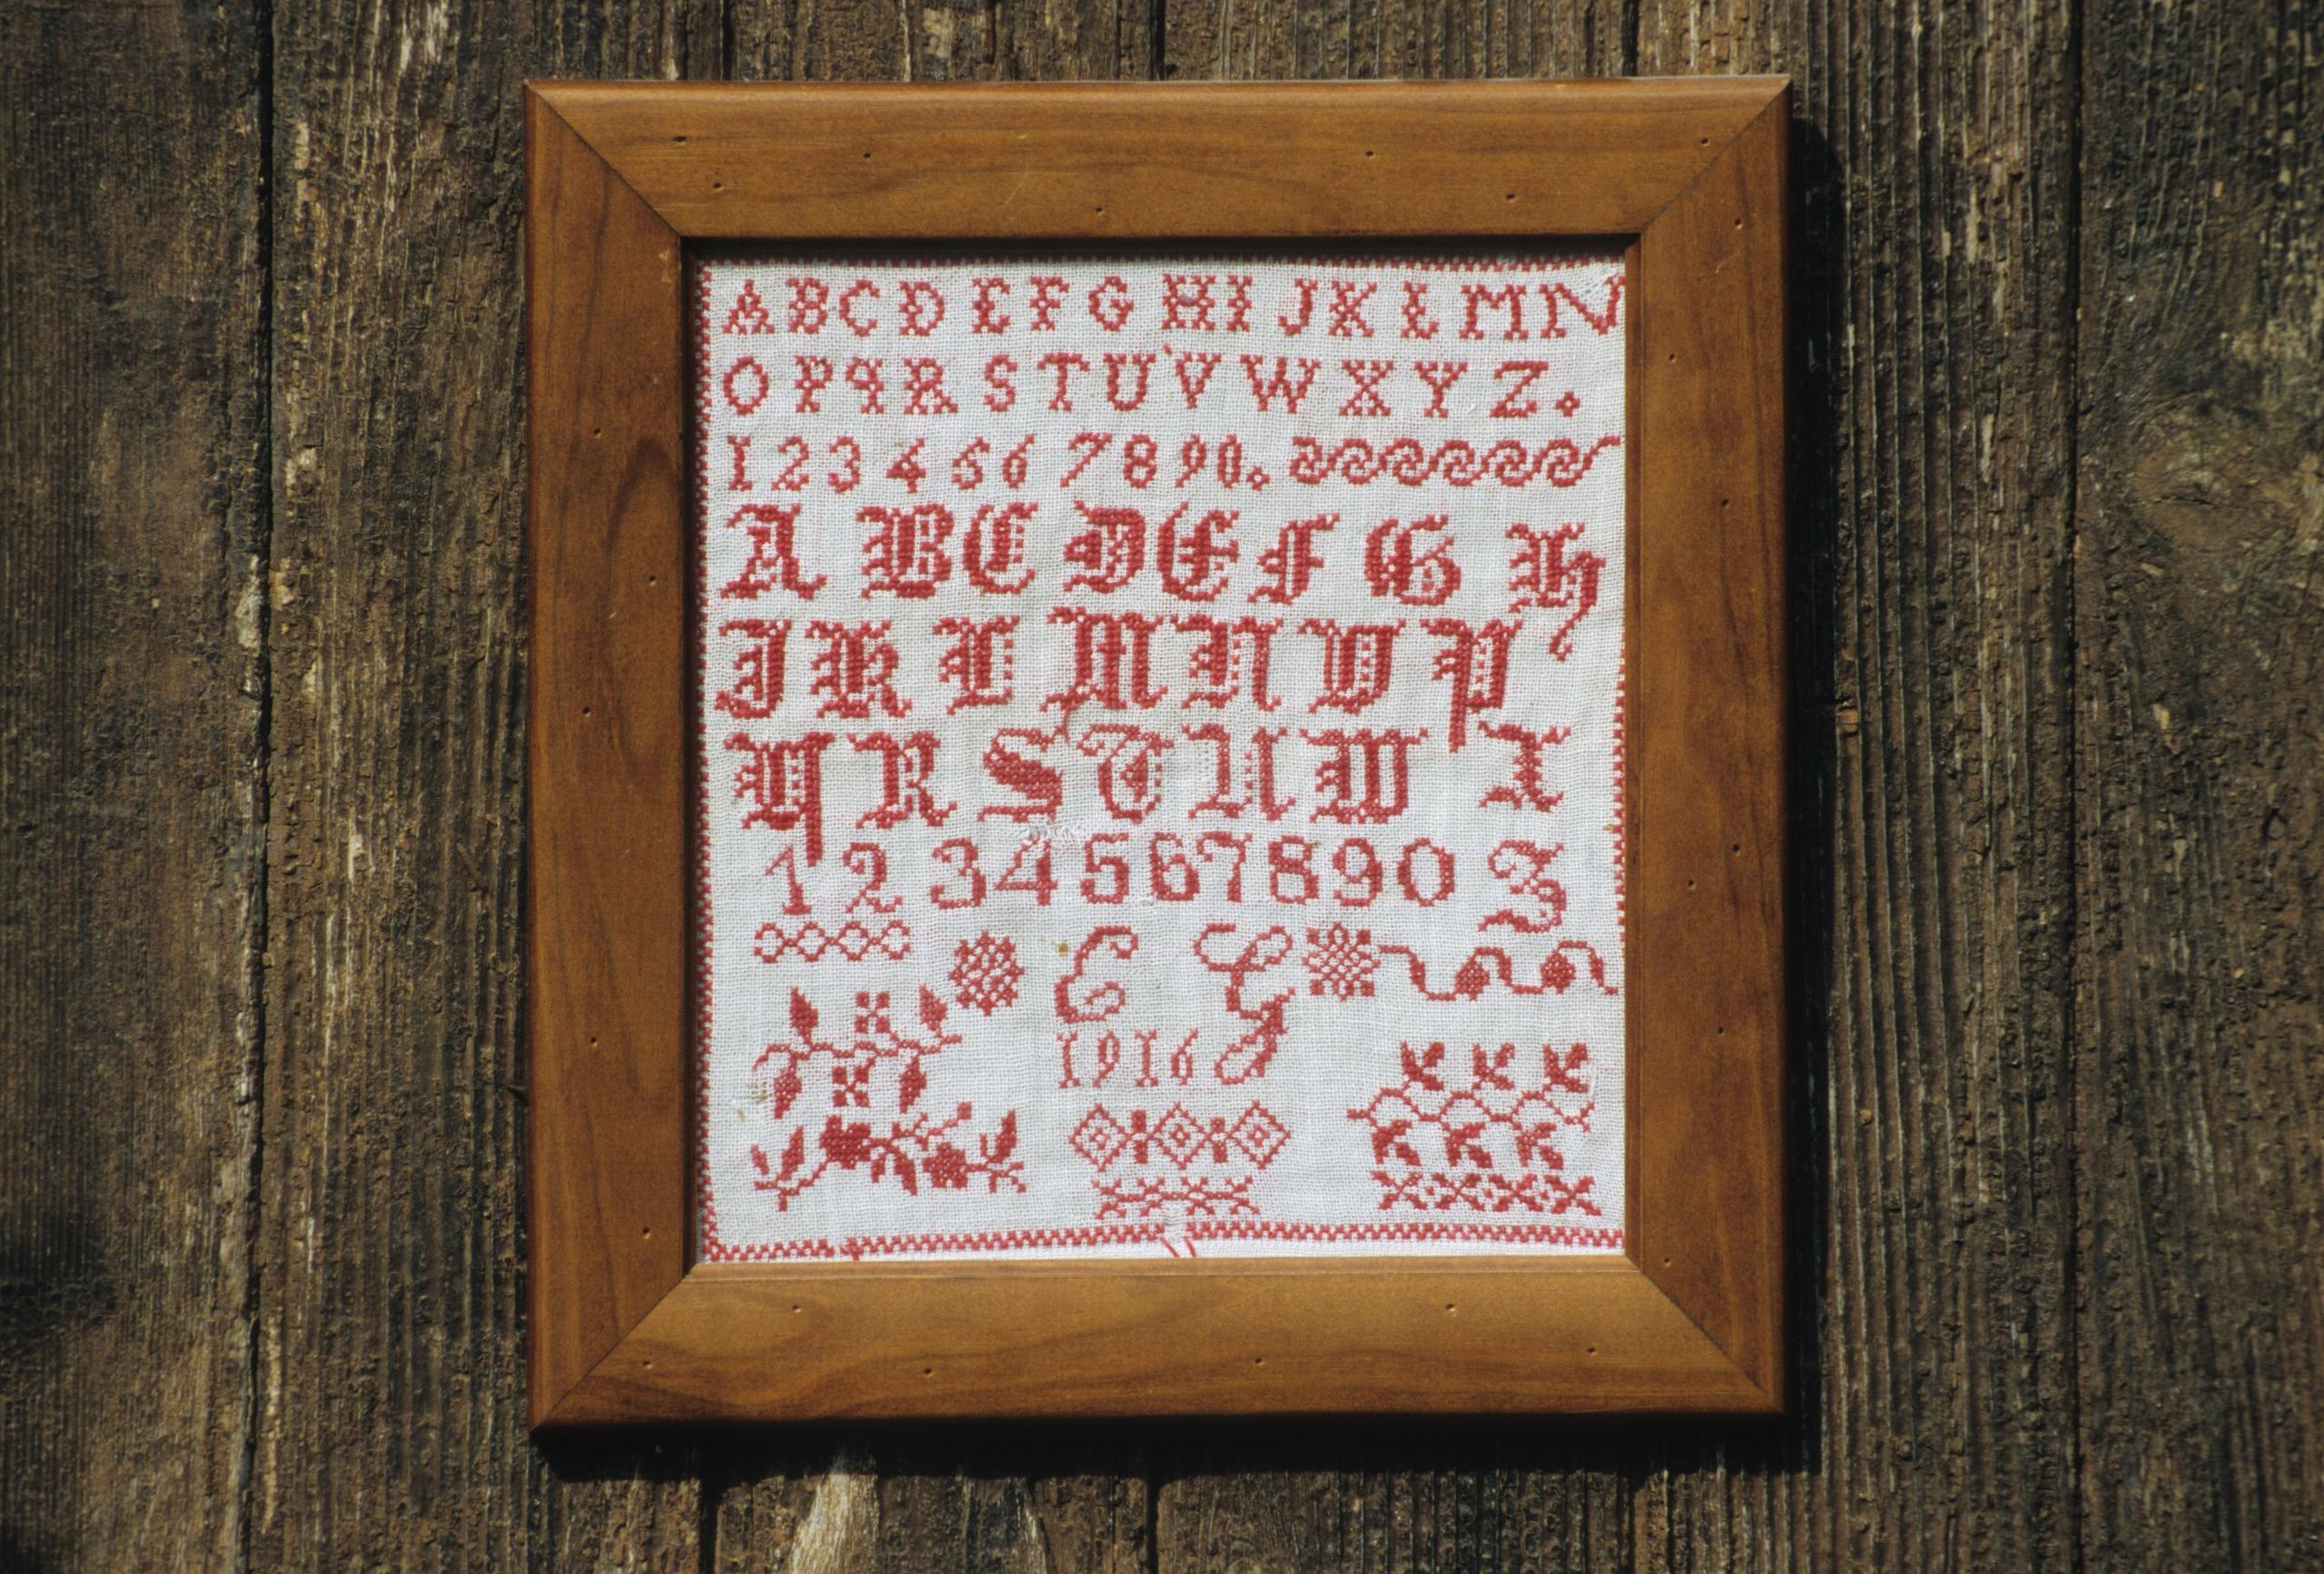 ABCDEFGHIJKLMN
OPqRSTUVWXYZ.
1234567890.
ABCDEFGH
IKLMNOP
QRSTUWX
1234567890 Z
E G
1916